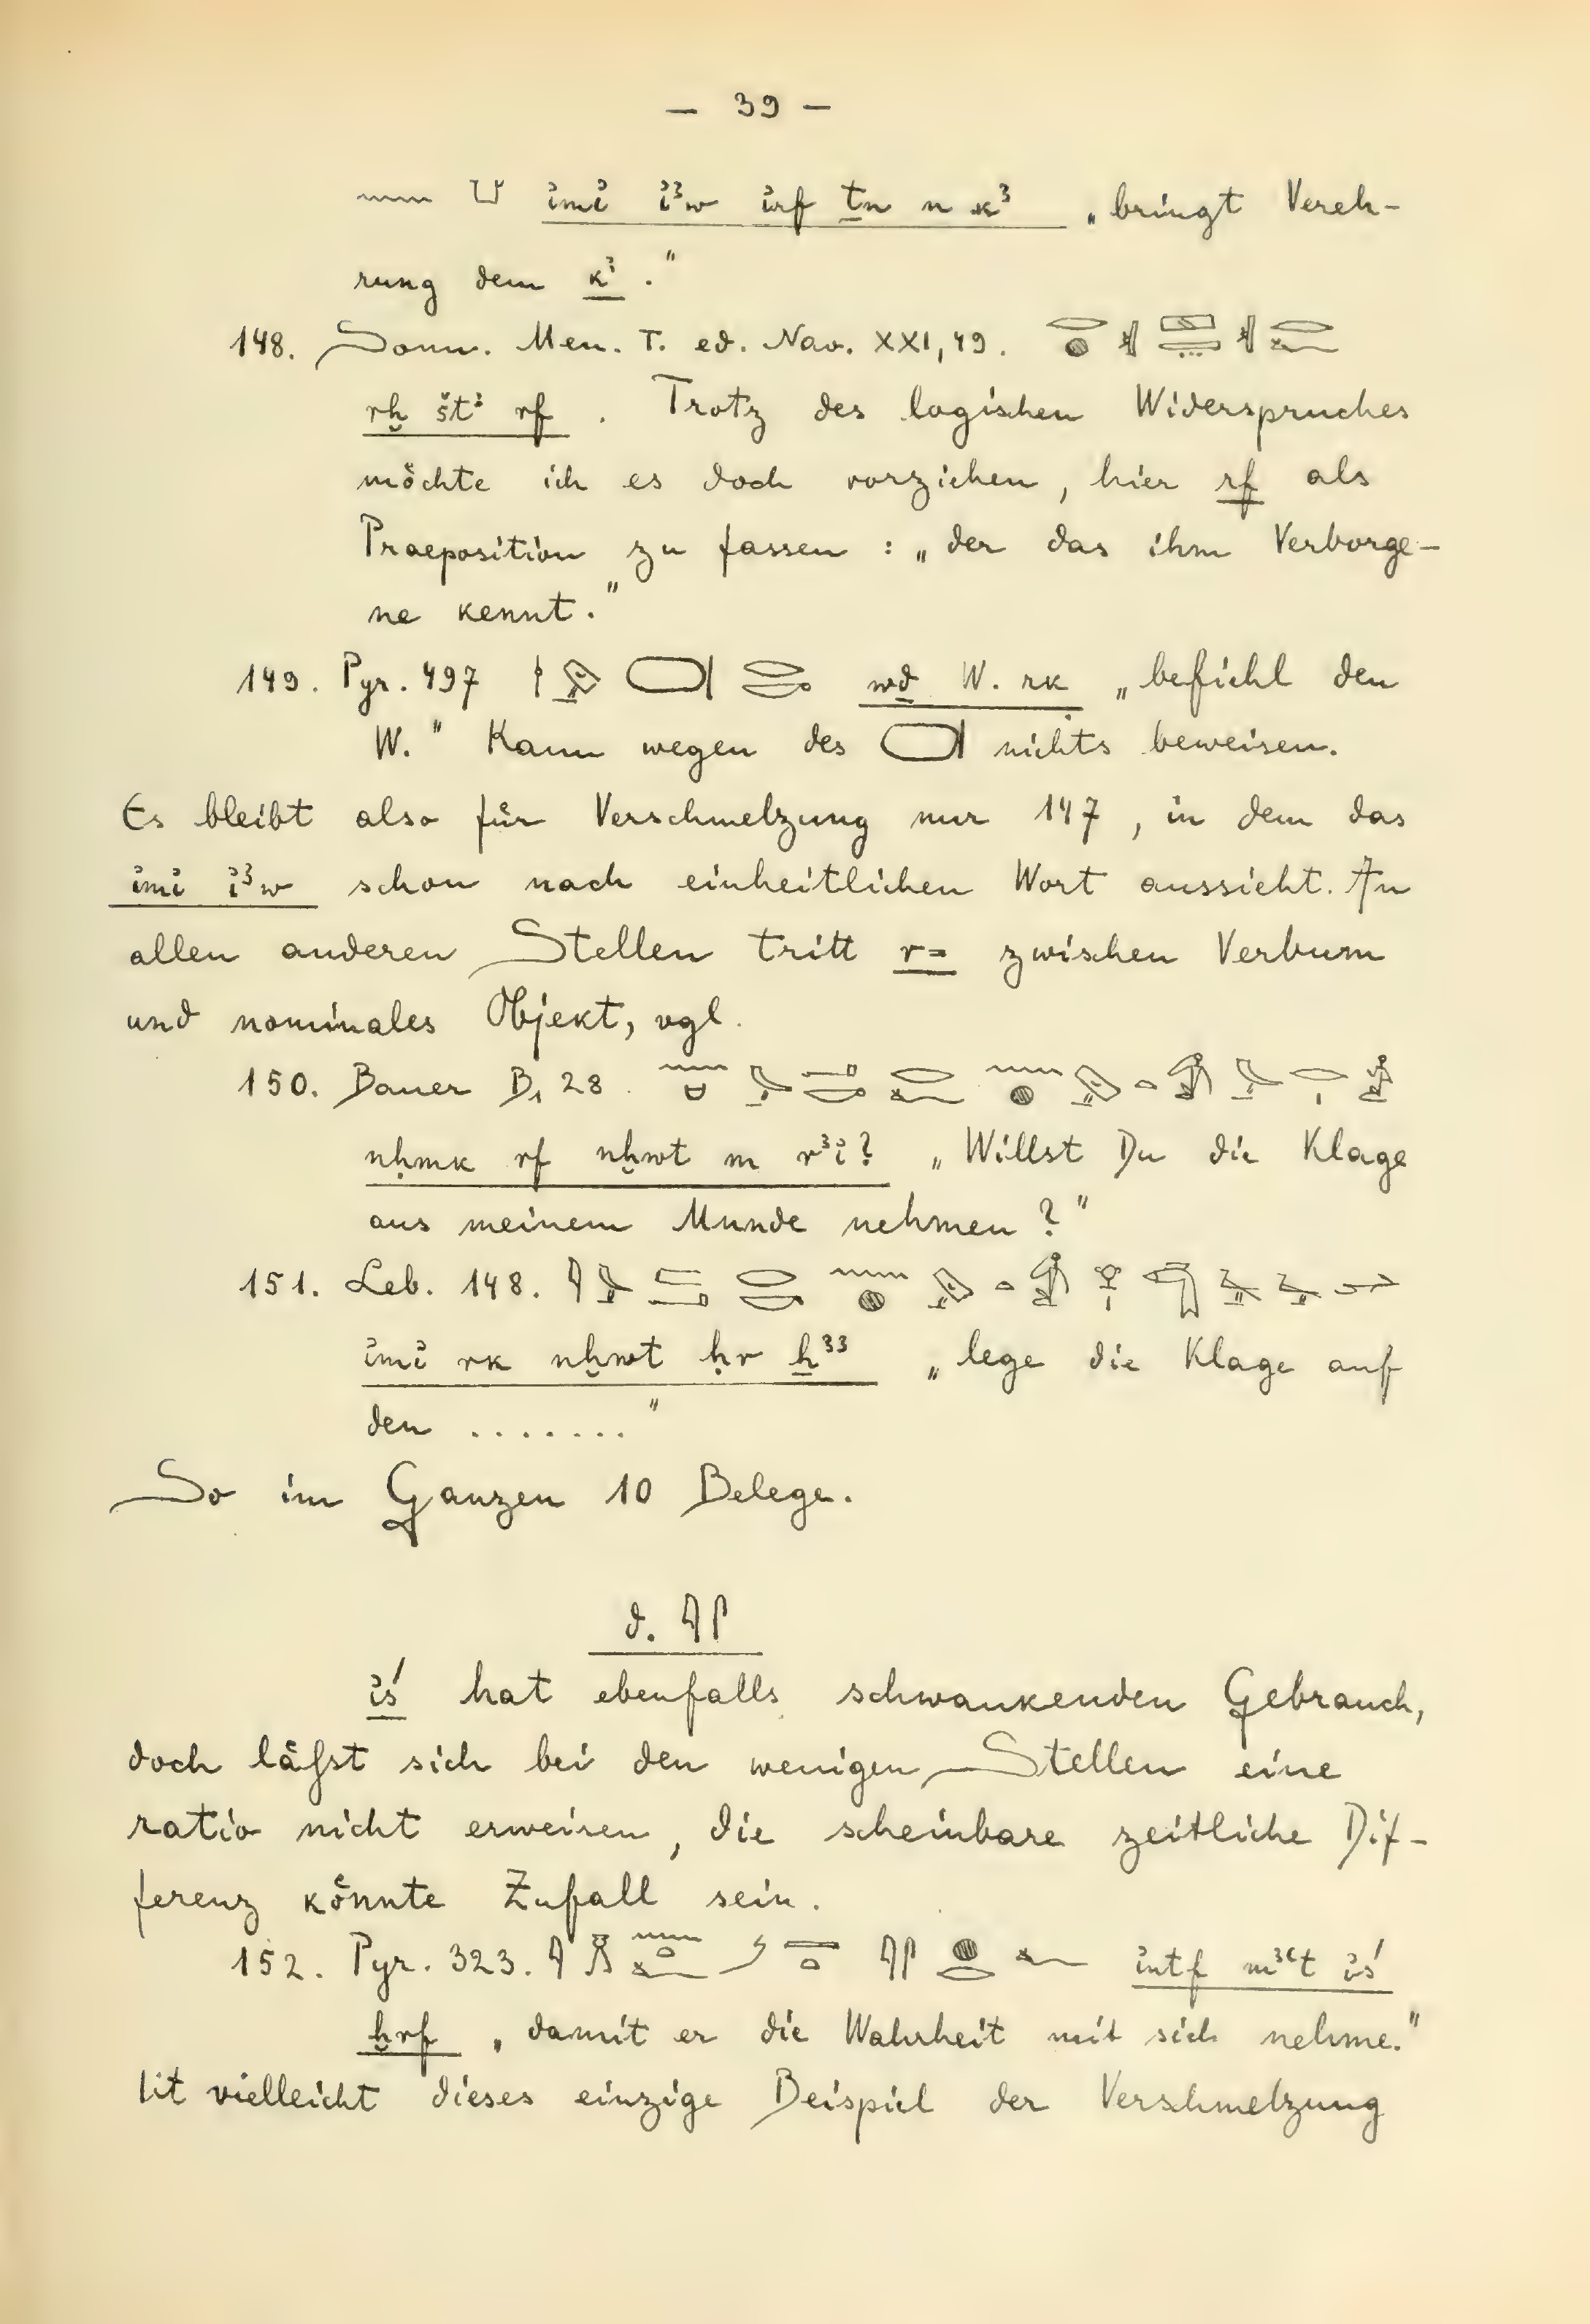 — 39 —
𓈖 𓂓 ı͗mı͗ ı͗ꜣw ı͗rf ṯn n kꜣ „bringt Vereh-
rung dem kꜣ."
148. Sonn. Men. T. ed. Nav. XXI, 49.
rḫ štꜣ rf. Trotz des logischen Widerspruches
möchte ich es doch vorziehen, hier rf als
Praeposition zu fassen: „der das ihm Verborge-
ne kennt."
149. Pyr. 497 𓍘𓅱 𓍷 𓂋𓎡 wḏ W. rk „befiehl den
W." Kann wegen des 𓍷 nichts beweisen.
Es bleibt also für Verschmelzung nur 147, in dem das
ı͗mı͗ ı͗ꜣw schon nach einheitlichen Wort aussieht. An
allen anderen Stellen tritt r= zwischen Verbum
und nominales Objekt, vgl.
150. Bauer B₁ 28.
nḥmk rf nḫwt m rꜣı͗? „Willst Du die Klage
aus meinem Munde nehmen?"
151. Leb. 148.
ı͗mı͗ rk nḫwt ḥr ẖꜣꜣ „lege die Klage auf
den ........"
So im Ganzen 10 Belege.
d. 𓇋𓋴
ı͗ś hat ebenfalls schwankenden Gebrauch,
doch läſst sich bei den wenigen Stellen eine
ratio nicht erweisen, die scheinbare zeitliche Dif-
ferenz könnte Zufall sein.
152. Pyr. 323. ı͗ntf mꜣꜥt ı͗ś
ḫrf „damit er die Wahrheit mit sich nehme."
Ist vielleicht dieses einzige Beispiel der Verschmelzung